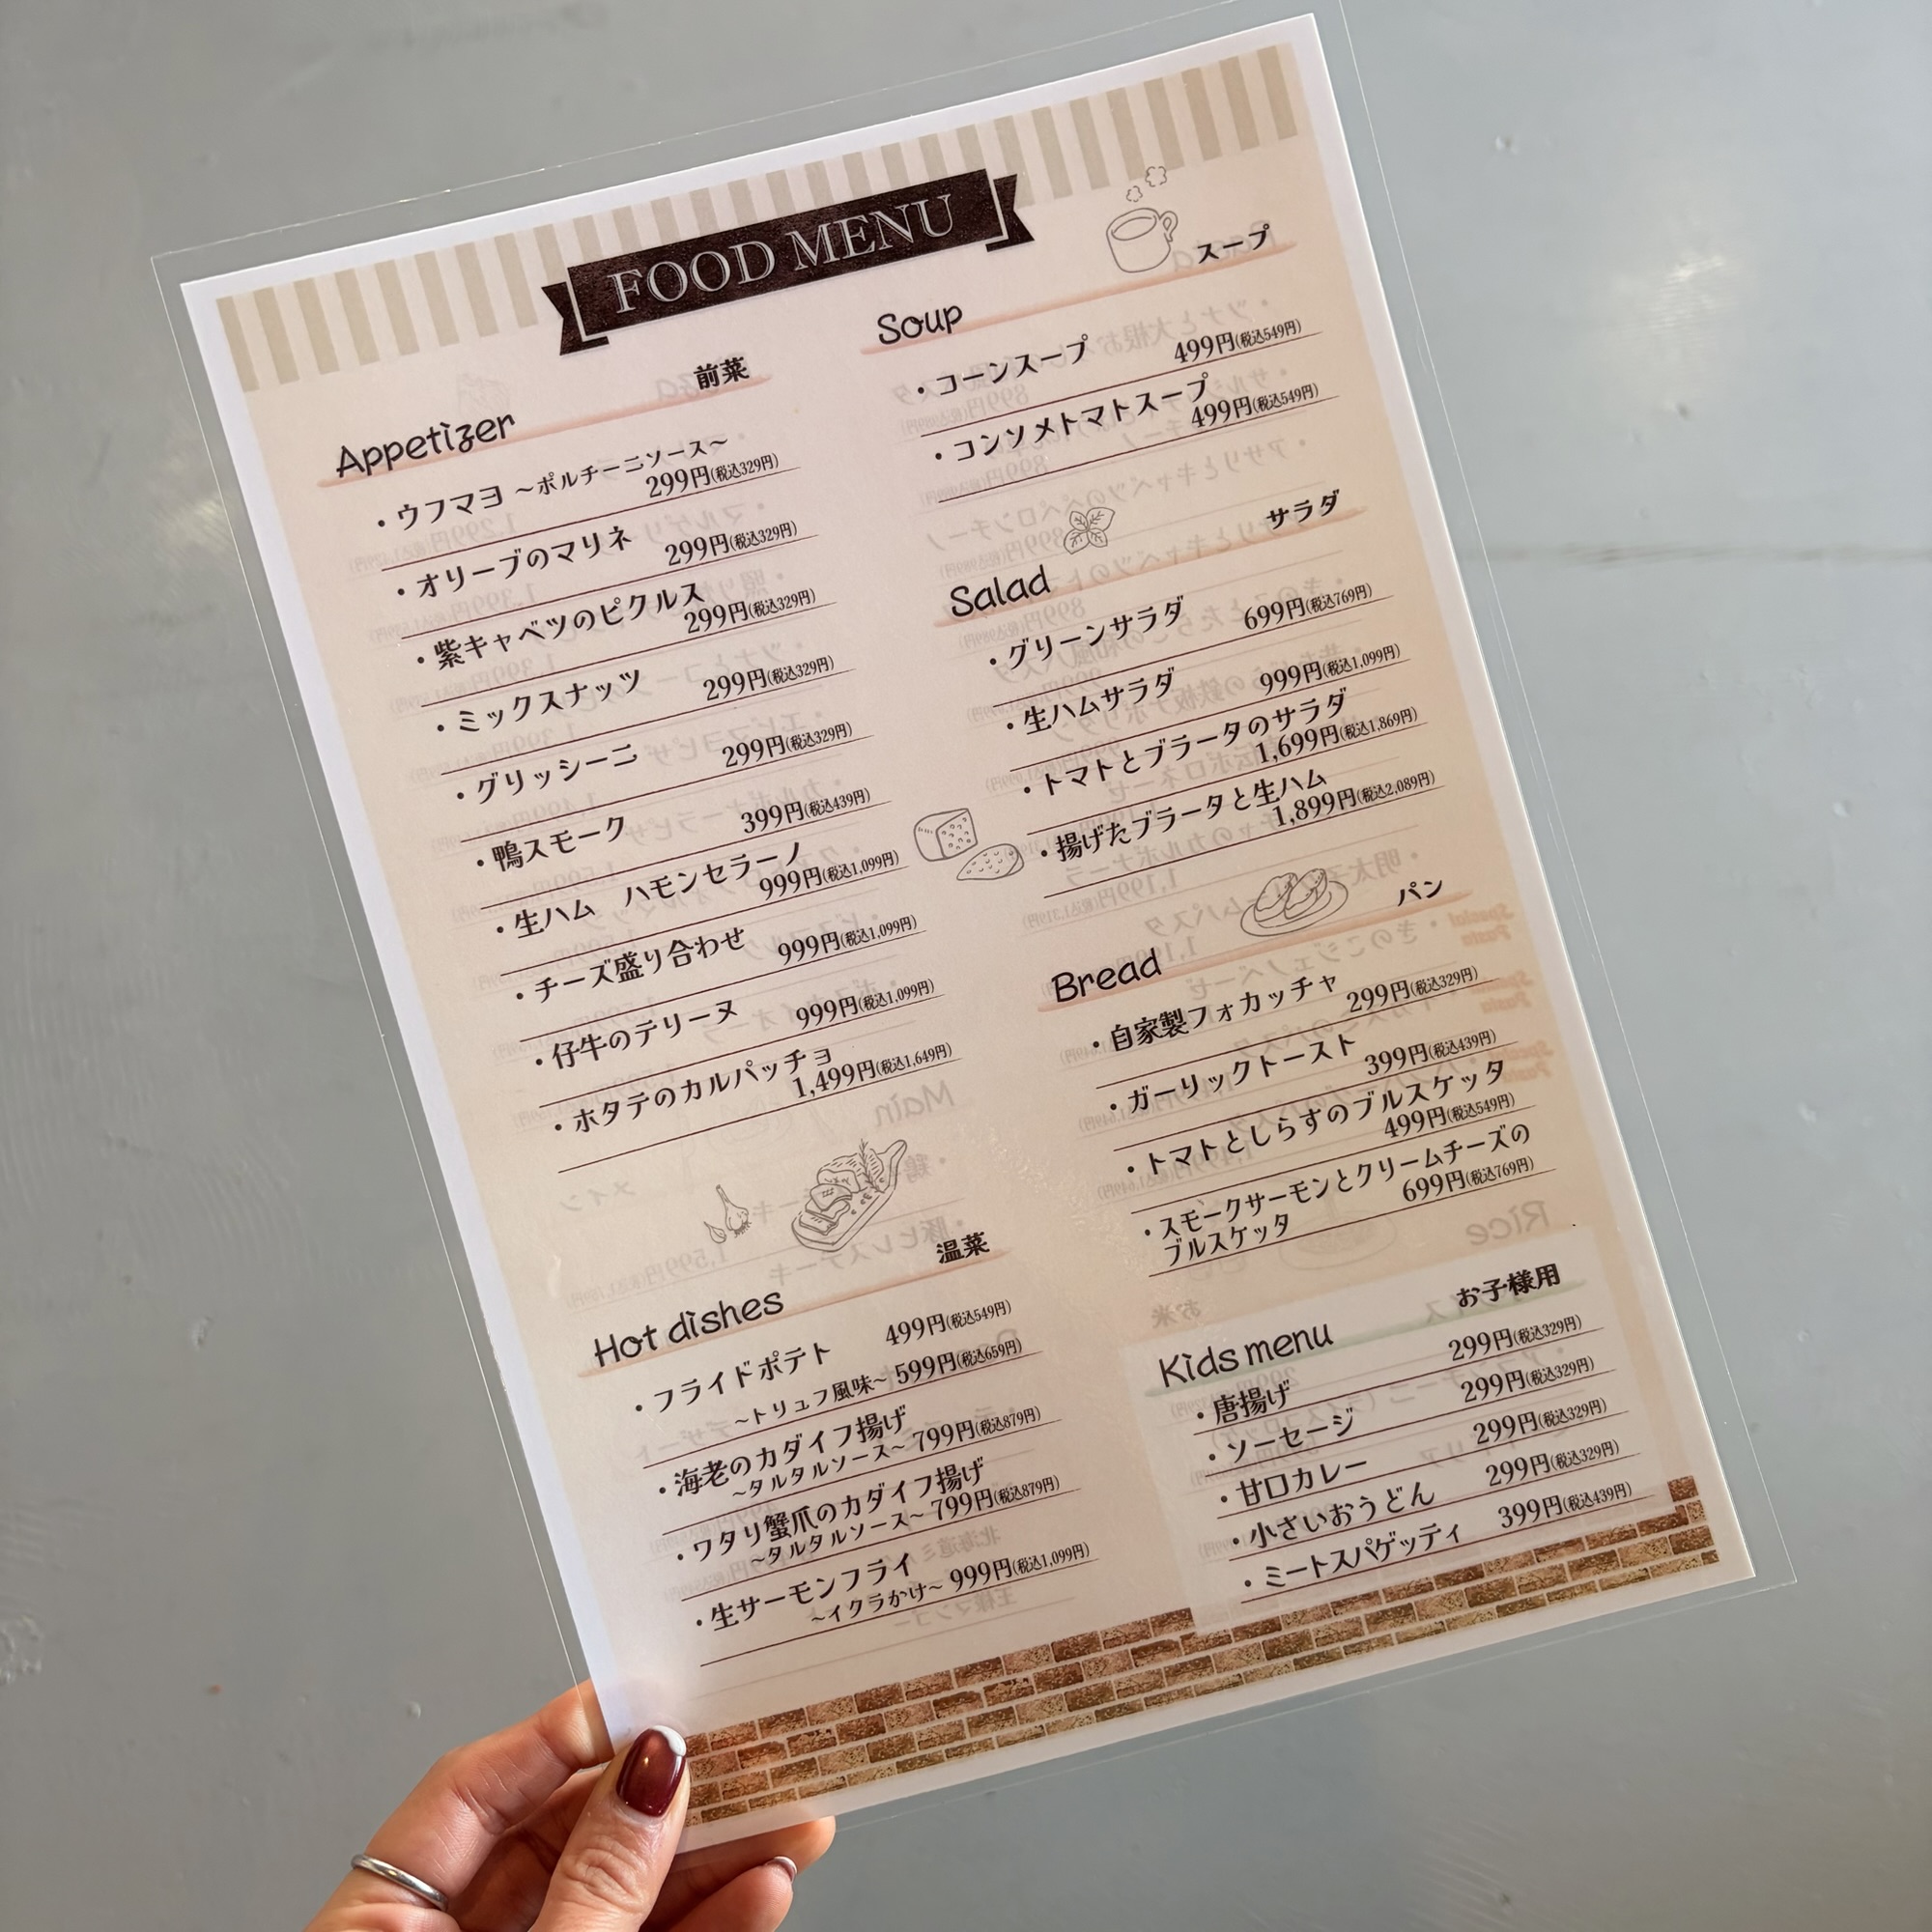 FOOD MENU
Appetizer 前菜
・ウフマヨ ～ポルチーニソース～
299円(税込329円)
・オリーブのマリネ 299円(税込329円)
・紫キャベツのピクルス
299円(税込329円)
・ミックスナッツ 299円(税込329円)
・グリッシーニ 299円(税込329円)
・鴨スモーク 399円(税込439円)
・生ハム ハモンセラーノ
999円(税込1,099円)
・チーズ盛り合わせ 999円(税込1,099円)
・仔牛のテリーヌ 999円(税込1,099円)
・ホタテのカルパッチョ
1,499円(税込1,649円)
Hot dishes 温菜
・フライドポテト 499円(税込549円)
～トリュフ風味～ 599円(税込659円)
・海老のカダイフ揚げ
～タルタルソース～ 799円(税込879円)
・ワタリ蟹爪のカダイフ揚げ
～タルタルソース～ 799円(税込879円)
・生サーモンフライ
～イクラかけ～ 999円(税込1,099円)
Soup スープ
・コーンスープ 499円(税込549円)
・コンソメトマトスープ
499円(税込549円)
Salad サラダ
・グリーンサラダ 699円(税込769円)
・生ハムサラダ 999円(税込1,099円)
・トマトとブラータのサラダ
1,699円(税込1,869円)
・揚げたブラータと生ハム
1,899円(税込2,089円)
Bread パン
・自家製フォカッチャ
299円(税込329円)
・ガーリックトースト
399円(税込439円)
・トマトとしらすのブルスケッタ
499円(税込549円)
・スモークサーモンとクリームチーズの
ブルスケッタ 699円(税込769円)
Kids menu お子様用
・唐揚げ 299円(税込329円)
・ソーセージ 299円(税込329円)
・甘口カレー 299円(税込329円)
・小さいおうどん 299円(税込329円)
・ミートスパゲッティ 399円(税込439円)